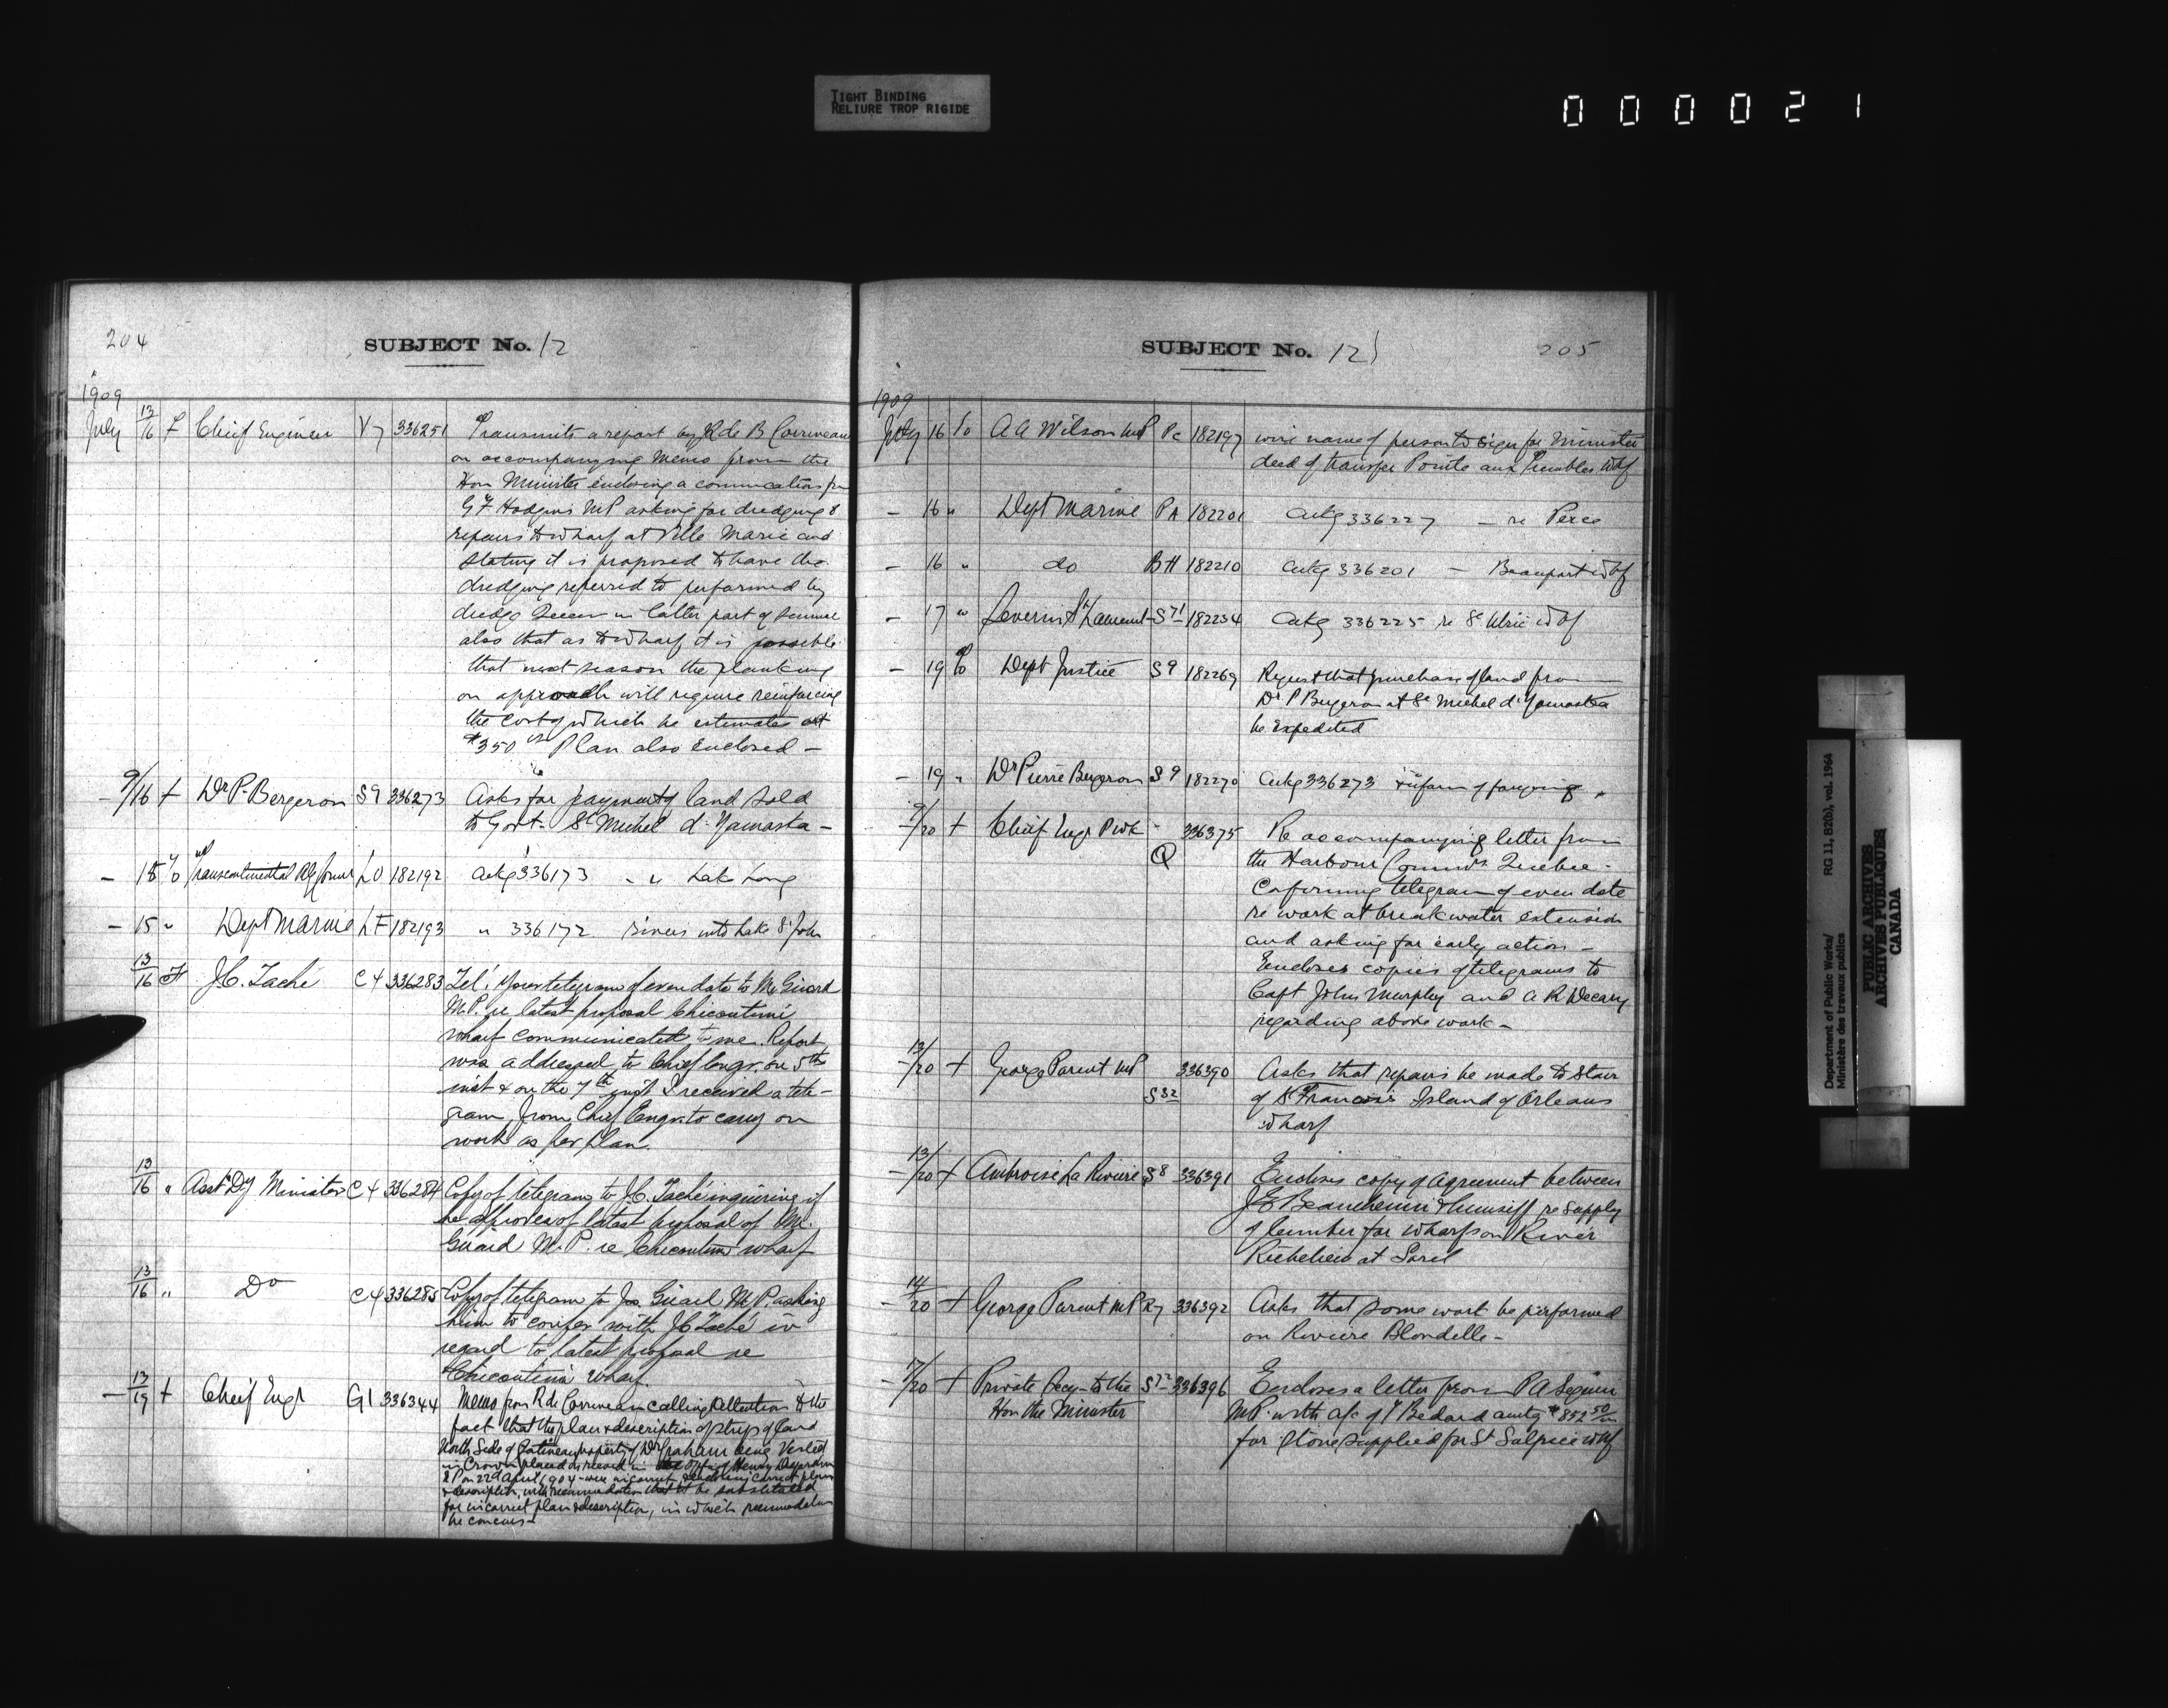 TIGHT BINDING
RELIURE TROP RIGIDE
000021
204
SUBJECT No. 12
1909
July 13/16 f Chief Engineer V7 336251 Transmits a report by R de B Corriveau
on accompanying Memo from the
Hon Minister enclosing a communication fm
G F Hodgins MP asking for dredging &
repairs to wharf at Ville Marie and
stating it is proposed to have the
dredging referred to performed by
dredge Queen in latter part of summer
also that as to wharf it is possible
that next season the planking
on approach will require reinforcing
the cost of which he estimates at
$350 Plan also Enclosed —
— 9/16 f Dr P. Bergeron S9 336273 Asks for payment of land sold
to Govt. St Michel d'Yamaska —
— 15 To Transcontinental Ry Comrs LO 182192 ackg 336173 " Lake Long
— 15 " Dept Marine LF 182193 " 336172 rivers into Lake St John
13/16 J.C. Taché C4 336283 Tel: Your telegram of even date to Mr Girard
M.P. re latest proposal Chicoutimi
wharf communicated to me. Report
was addressed to Chief Engr. on 5th
inst & on the 7th inst I received a tele-
gram from Chief Engr. to carry on
work as per plan.
13/16 " Asst Dy Minister C4 336284 Copy of telegram to J.C. Taché inquiring if
he approves of latest proposal of Mr.
Girard M.P. re Chicoutimi wharf
13/16 " Do C4 336285 Copy of telegram to Jos. Girard M.P. asking
him to confer with JC Taché in
regard to latest proposal re
Chicoutimi wharf.
— 13/19 f Chief Engr G1 336344 Memo from R de Corriveau calling attention to the
fact that the plan & description of strip of land
North Side of Gatineau property of Dr Graham being Vested
in Crown placed on record in office of Henry
on 22d April 1904 were incorrect enclosing correct plan
& description, with recommendation that it be substituted
for incorrect plan & description, in which recommendation
he concurs —
SUBJECT No. 12
205
1909
July 16 To A A Wilson MP Pc 182197 wire name of person to sign for Minister
deed of transfer Pointe aux Trembles Whf
— 16 " Dept Marine PA 182201 ackg 336227 — re Perce
— 16 " do BH 182210 ackg 336201 — Beauport Whf
— 17 " Severin St Laurent S71 182234 ackg 336225 re St Ulric Whf
— 19 To Dept Justice S9 182269 Request that purchase of land from
Dr. P Bergeron at St Michel d'Yamaska
be Expedited
— 19 " Dr Pierre Bergeron S9 182270 ackg 336273 & inform of foregoing
— 9/20 f Chief Engr P Wk Q 336375 Re accompanying letter from
the Harbour Commrs. Quebec —
Confirming telegram of even date
re work at breakwater extension
and asking for early action —
Encloses copies of telegrams to
Capt John Murphy and A R Decary
regarding above work —
— 13/20 f George Parent MP S32 336390 Asks that repairs be made to stair
of St Francois Island of Orleans
wharf
— 13/20 f Ambroise La Riviere S8 336391 Encloses copy of agreement between
J E Beauchemin & himself re supply
of lumber for wharfs on River
Richelieu at Sorel
— 14/20 f George Parent MP R7 336392 Asks that some work be performed
on Riviere Blondelle —
— 7/20 f Private Secy to the S72 336396 Encloses a letter from P A Seguin
Hon the Minister MP. with a/c of Bedard amtg $852 50/00
for stone supplied for St Sulpice Whf
Department of Public Works/
Ministère des travaux publics
RG 11, B2(b), vol. 1964
PUBLIC ARCHIVES
ARCHIVES PUBLIQUES
CANADA